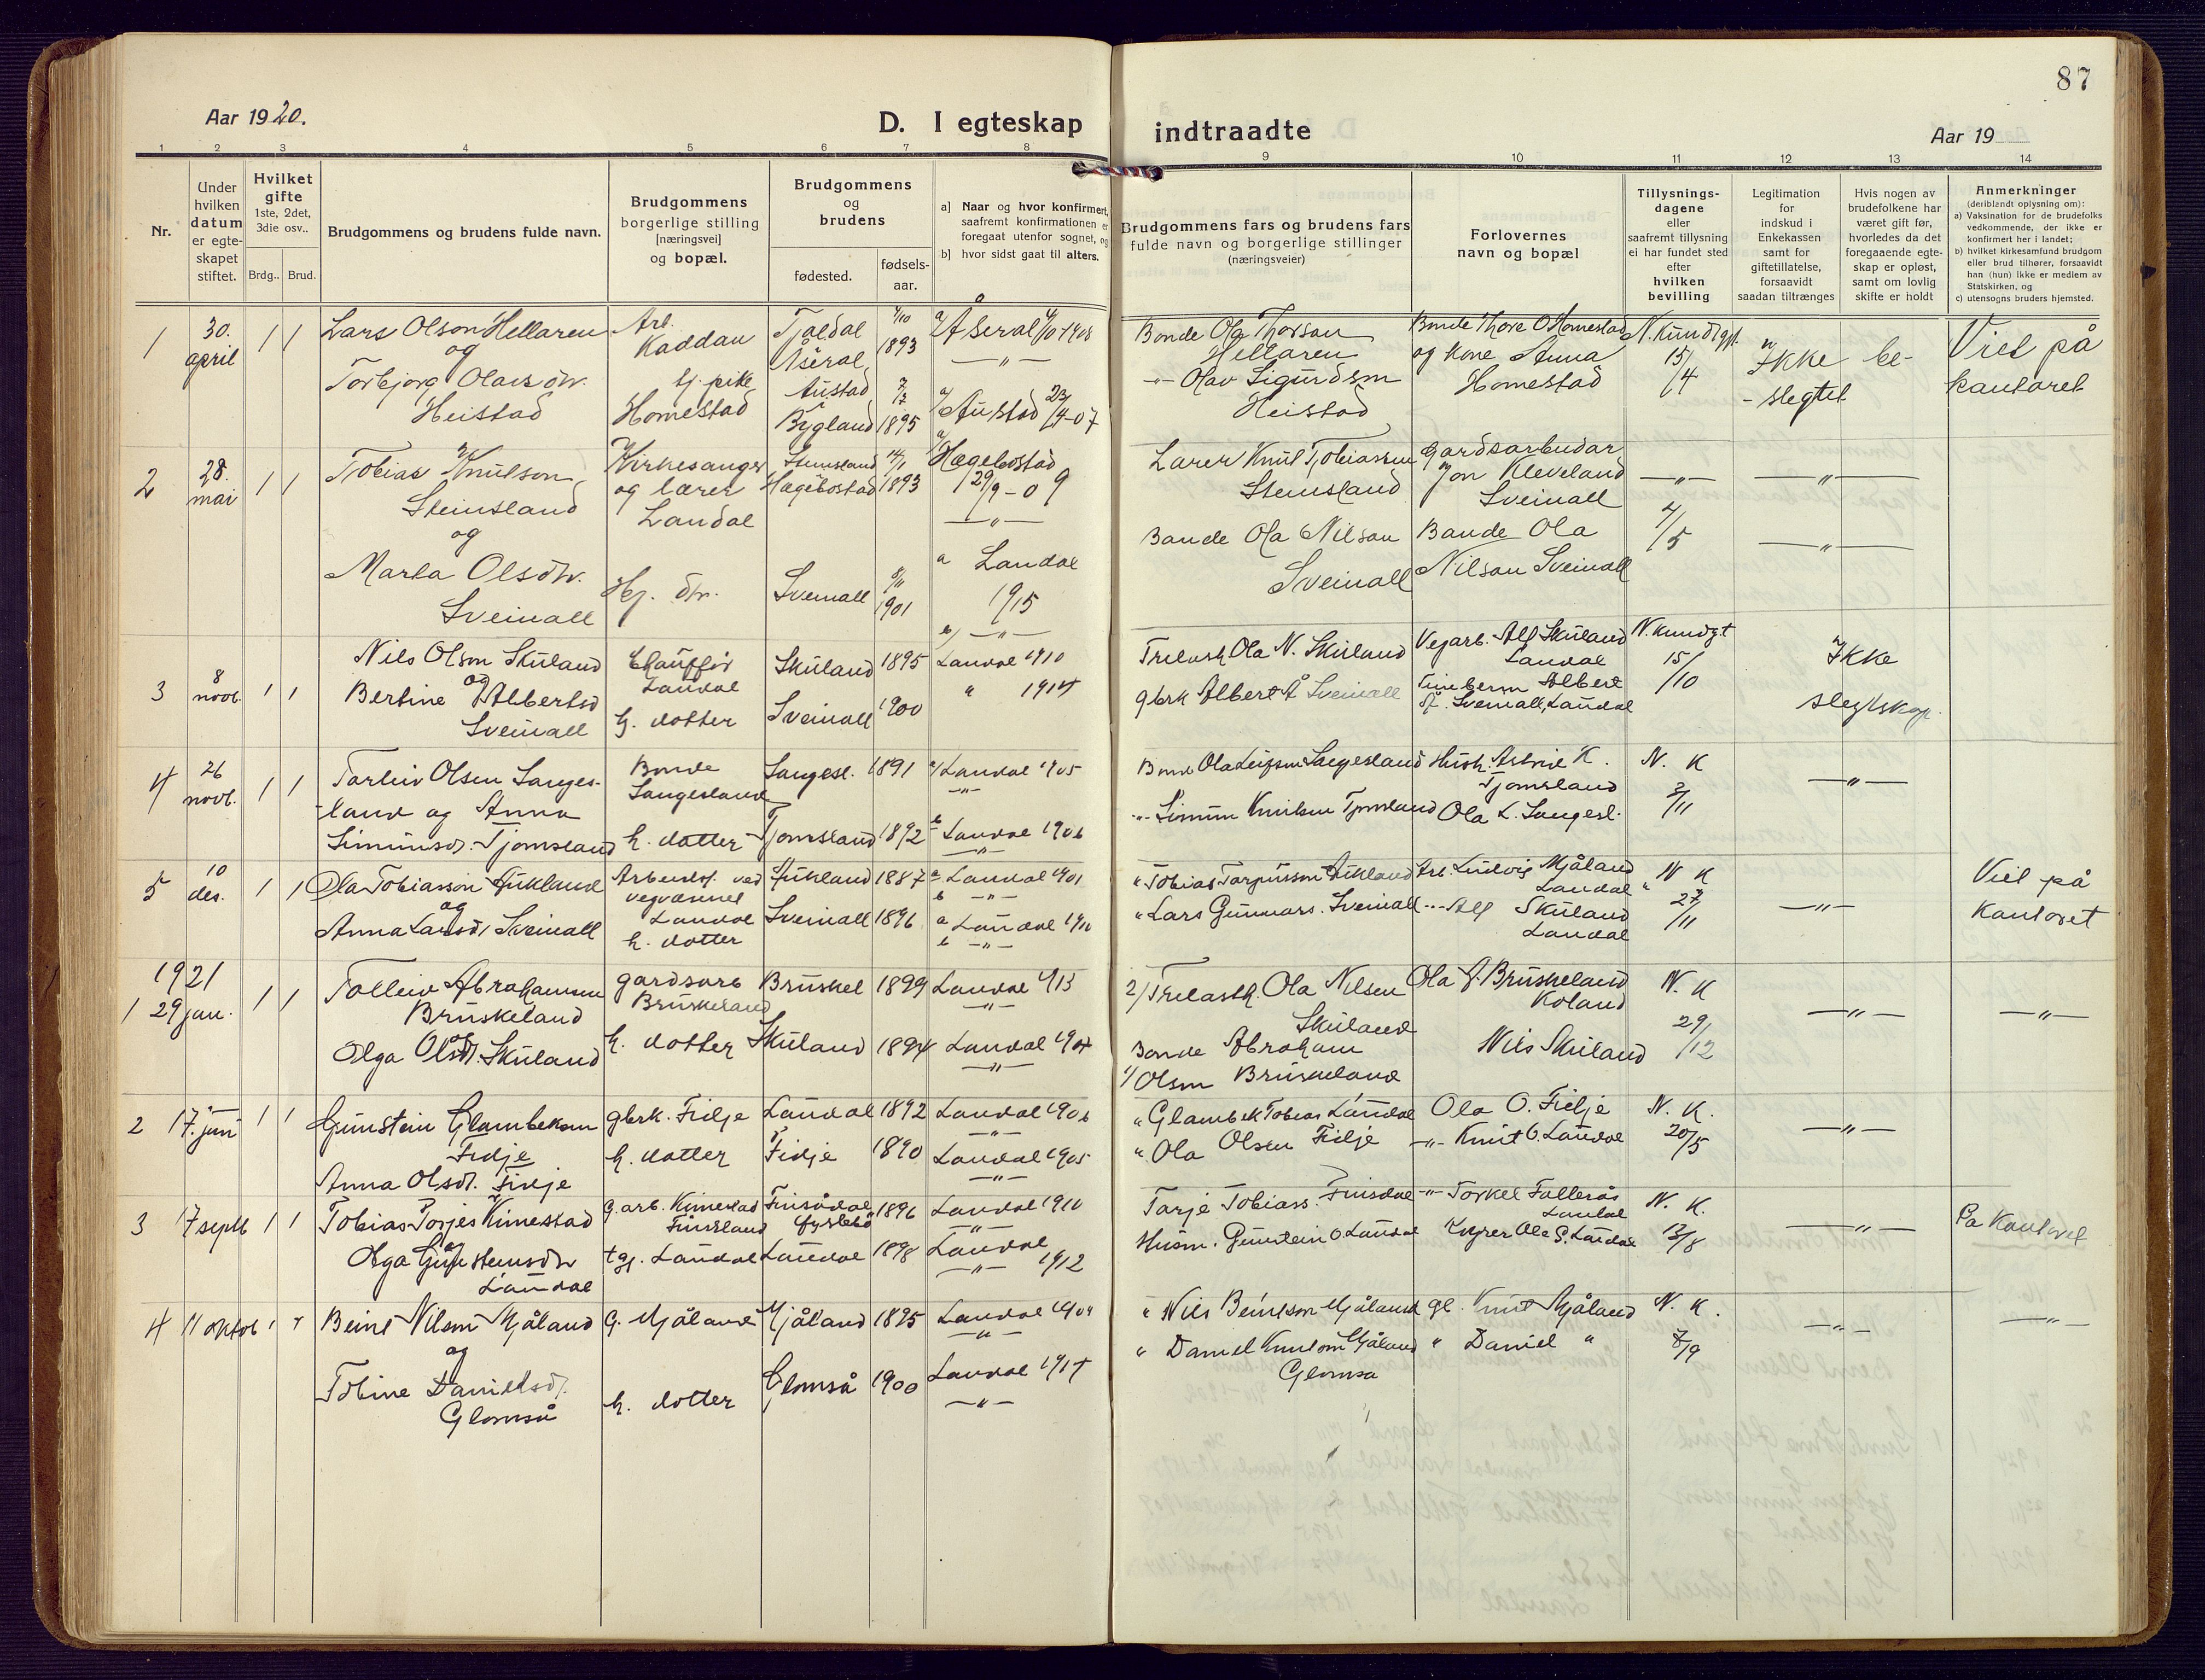 87
Aar 1920.
D. I egteskap
indtraadte
Aar 19
1 2 3 4 5 6 7 8 9 10 11 12 13 14
Nr.
Under hvilken datum er egte- skapet stiftet.
Hvilket gifte 1ste, 2det, 3die osv..
Brdg.. Brud.
Brudgommens og brudens fulde navn.
Brudgommens borgerlige stilling [næringsvei] og bopæl.
Brudgommens og brudens
fødested.
fødsels- aar.
a] Naar og hvor konfirmert, saafremt konfirmationen er foregaat utenfor sognet, og
b] hvor sidst gaat til alters.
Brudgommens fars og brudens fars fulde navn og borgerlige stillinger (næringsveier)
Forlovernes navn og bopæl
Tillysnings- dagene eller saafremt tillysning ei har fundet sted efter hvilken bevilling
Legitimation for indskud i Enkekassen samt for giftetillatelse, forsaavidt saadan tiltrænges
Hvis nogen av brudefolkene har været gift før, hvorledes da det foregaaende egte- skap er opløst, samt om lovlig skifte er holdt
Anmerkninger (deriblandt oplysning om):
a) Vaksination for de brudefolks vedkommende, der ikke er konfirmert her i landet;
b) hvilket kirkesamfund brudgom eller brud tilhører, forsaavidt han (hun) ikke er medlem av Statskirken, og
c) utensogns bruders hjemsted.
1 30. april 1 1
Lars Olson Hellaren
og
Torbjørg Olavsdtr.
Heistad
Arb. Kaddan
tj. pike
Homestad
Åseral 1893
Austad 7/7
Bygland 1895
a/ Åseral
a/ Austad 23/4-07
Bonde Ola Thorson
Hellaren
-"- Olav Sigurdson
Heistad
Bonde Thore O Homestad
og kone Anna
Homestad
15/4
Ikke be-
slegtet
Viet på
kontoret
2 28. mai 1 1
Tobias Knutson
Steinsland
og
Marta Olsdtr.
Sveinall
Kirkesanger
og lærer
Laudal
Hj. dtr.
Steinsland 14/1
Hægebostad 1893
Sveinall 8/11
1901
a/ Hægebostad
29/9-09
-"-
a Laudal
1915
b/ -"-
Lærer Knut Tobiassen
Steinsland
Bonde Ola Nilson
Sveinall
Gardsarbeidar
Jon Kleveland
Sveinall
Bonde Ola
Nilson Sveinall
-"-
-"-
-"-
3 8 novb. 1 1
Nils Olson Skuland
og
Bertine Albertsd
Sveinall
Chauffør
Laudal
h. dotter
Skuland 1895
Sveinall 1900
Laudal 1910
" 1914
Ola N. Skuland
gbrk Albert Å Sveinall
Vegarb. Alf Skuland
Laudal
Albert
Å. Sveinall, Laudal
N. kundgt
15/10
Ikke
slegtskap.
4 26 novb. 1 1
Tarleiv Olsen Langes-
land og Anna
Simunsd. Tjomsland
Bonde
Langesland
h. dotter
Langesl. 1891
Tjomsland 1892
a/ Laudal 1905
-"-
Laudal 1906
-"-
-"- Simun Knutsen Tjomsland
Tjomsland
Ola L. Langesl.
N. K
2/11
-"-
5 10 des. 1 1
Ola Tobiasson Aukland
og
Anna Larsd. Sveinall
Arbeidsf. ved
vegvæsnet
Laudal
h. dotter
Aukland 1887
Sveinall 1896
a Laudal 1901
b -"-
a Laudal 1910
b -"-
" Tobias Tarjusson Aukland
" Lars Gunnars. Sveinall
Arb. Ludvig Mjåland
Laudal
-"- Alf Skuland
Laudal
N K
27/11
-"-
Viet på
kontoret
1921
1 29 jan. 1 1
Tolleiv Abrahamsen
Bruskeland
og
Olga Olsd. Skuland
gardsarb
Bruskeland
h. dotter
Bruskel 1899
Skuland 1894
Laudal 1913
-"-
Laudal
-"-
2/ Ola Nilsen
Skuland
Bonde Abraham
1/ Olsen Bruskeland
Ola A. Bruskeland
Koland
Nils Skuland
N. K
29/12
-"-
-"-
2 17. juni 1 1
Gunstein Glambeksen
Fidje
Anna Olsd. Fidje
gbrk. Fidje
h. dotter
Laudal 1892
Fidje 1890
Laudal 1906
-"-
Laudal 1905
-"-
" Glambek Tobias Laudal
" Ola Olsen Fidje
Ola O. Fidje
-"- Knut O. Laudal
N. K.
20/5
-"-
3 17 septb 1 1
Tobias Torjes Kimestad
og
Olga Gunsteinsdtr
Laudal
g. arb. Kimestad
Finsland
Laudal
Finsådal 1896
Laudal 1898
Laudal 1910
-"-
Laudal
-"- 1912
Tarje Tobiass. Finsdal
Husm. Gunstein O. Laudal
-"- Torkel Follerås
Laudal
Ola G. Laudal
N. K.
13/8
-"-
På Kontoret
4 11 oktob 1 1
Beint Nilsen Mjåland
og
Tobine Danielsd.
Glomså
G. Mjåland
h. dotter
Mjåland 1895
Glomså 1900
Laudal 1909
-"-
Laudal 1914
-"-
" Nils Beintson Mjåland
" Daniel Knutson Mjåland
Glomså
gl. Knut Mjåland
" Daniel "
N. K.
8/9
-"-
-"-